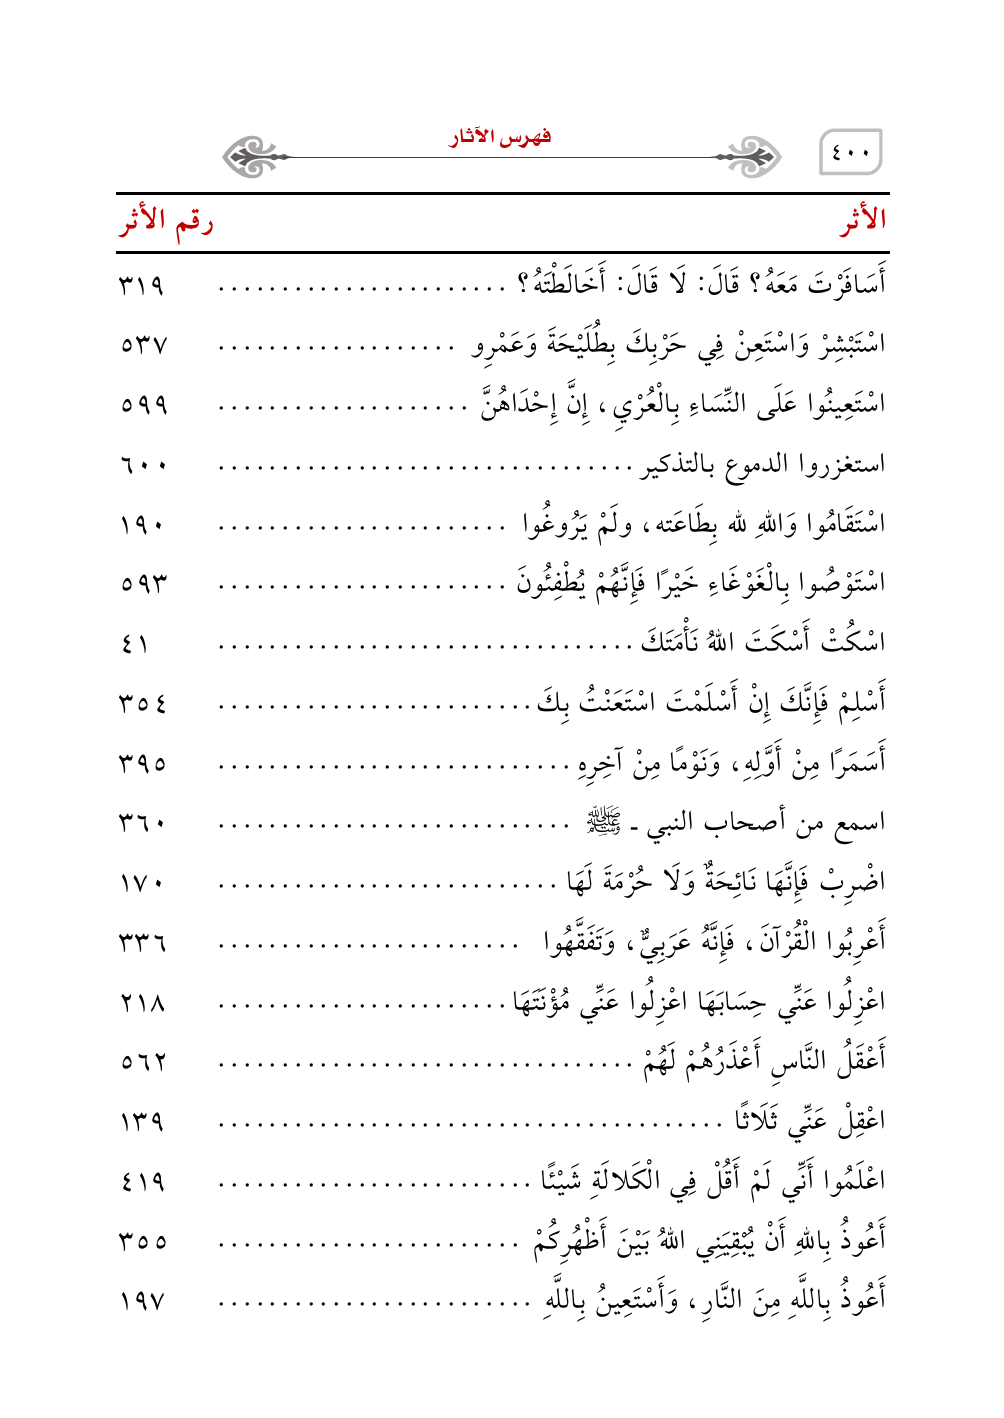 ٤٠٠ فهرس الآثار
الأثر رقم الأثر
أَسَافَرْتَ مَعَهُ؟ قَالَ: لَا قَالَ: أَخَالَطْتَهُ؟ ....................... ٣١٩
اسْتَبْشِرْ وَاسْتَعِنْ فِي حَرْبِكَ بِطُلَيْحَةَ وَعَمْرِو ................... ٥٣٧
اسْتَعِينُوا عَلَى النِّسَاءِ بِالْعُرْيِ، إِنَّ إِحْدَاهُنَّ .................... ٥٩٩
استغزروا الدموع بالتذكير ................................. ٦٠٠
اسْتَقَامُوا وَاللهِ لله بِطَاعَته، ولَمْ يَرُوغُوا ....................... ١٩٠
اسْتَوْصُوا بِالْغَوْغَاءِ خَيْرًا فَإِنَّهُمْ يُطْفِئُونَ ....................... ٥٩٣
اسْكُتْ أَسْكَتَ اللهُ نَأْمَتَكَ ................................. ٤١
أَسْلِمْ فَإِنَّكَ إِنْ أَسْلَمْتَ اسْتَعَنْتُ بِكَ ......................... ٣٥٤
أَسَمَرًا مِنْ أَوَّلِهِ، وَنَوْمًا مِنْ آخِرِهِ ............................ ٣٩٥
اسمع من أصحاب النبي ـ ﷺ ............................ ٣٦٠
اضْرِبْ فَإِنَّهَا نَائِحَةٌ وَلَا حُرْمَةَ لَهَا ........................... ١٧٠
أَعْرِبُوا الْقُرْآنَ، فَإِنَّهُ عَرَبِيٌّ، وَتَفَقَّهُوا ........................ ٣٣٦
اعْزِلُوا عَنِّي حِسَابَهَا اعْزِلُوا عَنِّي مُؤْنَتَهَا ....................... ٢١٨
أَعْقَلُ النَّاسِ أَعْذَرُهُمْ لَهُمْ ................................. ٥٦٢
اعْقِلْ عَنِّي ثَلَاثًا ........................................ ١٣٩
اعْلَمُوا أَنِّي لَمْ أَقُلْ فِي الْكَلالَةِ شَيْئًا ......................... ٤١٩
أَعُوذُ بِاللهِ أَنْ يُبْقِيَنِي اللهُ بَيْنَ أَظْهُرِكُمْ ........................ ٣٥٥
أَعُوذُ بِاللَّهِ مِنَ النَّارِ، وَأَسْتَعِينُ بِاللَّهِ ......................... ١٩٧